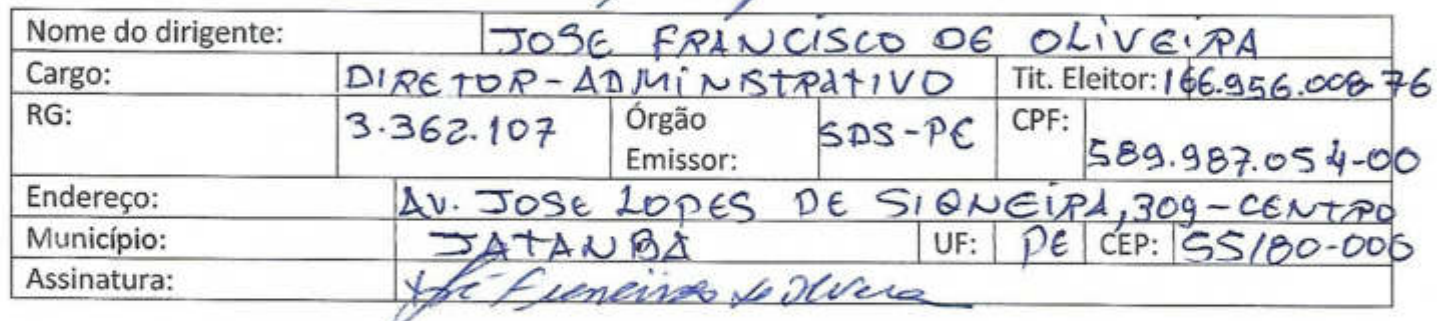 Nome do dirigente: JOSE FRANCISCO DE OLIVEIRA
Cargo: DIRETOR-ADMINISTRATIVO Tit. Eleitor: 166.956.008-76
RG: 3.362.107 Órgão Emissor: SDS-PE CPF: 589.987.054-00
Endereço: AV. JOSE LOPES DE SIQNEIRA, 309-CENTRO
Município: JATAUBA UF: PE CEP: 55180-000
Assinatura: José Francisco de Oliveira